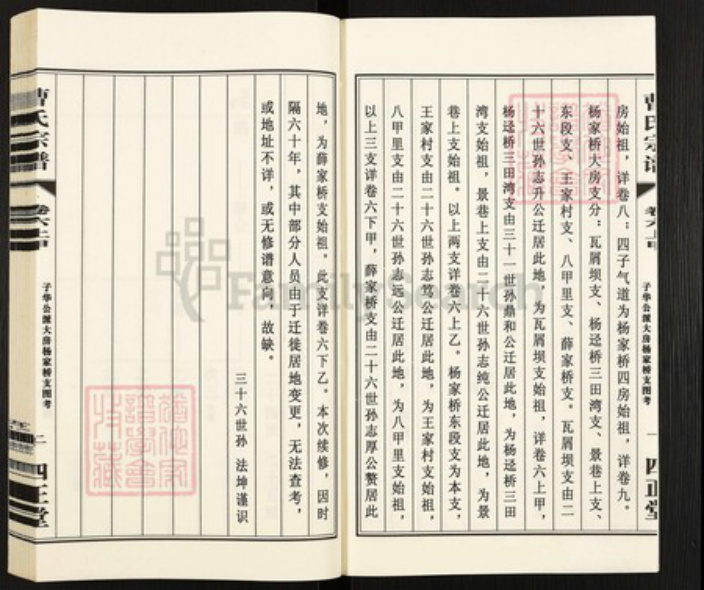 曹氏宗谱
卷六上甲
子华公派大房杨家桥支图考
一
四正堂
房始祖，详卷八；四子气道为杨家桥四房始祖，详卷九。
杨家桥大房支分：瓦屑坝支、杨迳桥三田湾支、景巷上支、
东段支、王家村支、八甲里支、薛家桥支。瓦屑坝支由二
十六世孙志升公迁居此地，为瓦屑坝支始祖，详卷六上甲，
杨迳桥三田湾支由三十一世孙鼎和公迁居此地，为杨迳桥三田
湾支始祖，景巷上支由二十六世孙志纯公迁居此地，为景
巷上支始祖。以上两支详卷六上乙。杨家桥东段支为本支，
王家村支由二十六世孙志笃公迁居此地，为王家村支始祖，
八甲里支由二十六世孙志远公迁居此地，为八甲里支始祖，
以上三支详卷六下甲，薛家桥支由二十六世孙志厚公赘居此
地，为薛家桥支始祖。此支详卷六下乙。本次续修，因时
隔六十年，其中部分人员由于迁徙居地变更，无法查考，
或地址不详，或无修谱意向，故缺。
三十六世孙 法坤谨识
曹氏宗谱
卷六上甲
子华公派大房杨家桥支图考
二
四正堂
FamilySearch